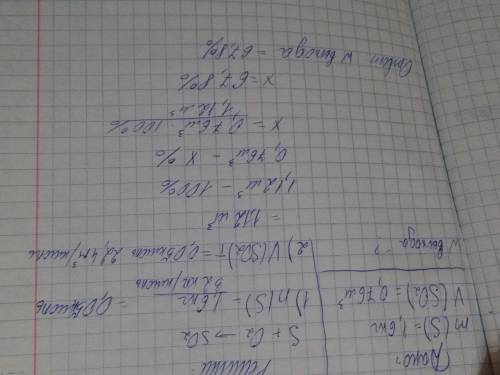 Дано:
m(S) = 1,6кг
V(SO₂) = 0,76м³
W выхода - ?
Решение:
S + O₂ → SO₂
1) n(S) = 1,6кг / 32 кг/кмоль = 0,05кмоль
2) V(SO₂)т = 0,05кмоль · 22,4м³/кмоль
= 1,12 м³
1,12м³ – 100%
0,76м³ – x%
x = 0,76м³ · 100% / 1,12м³
x = 67,8%
Ответ: W выхода = 67,8%